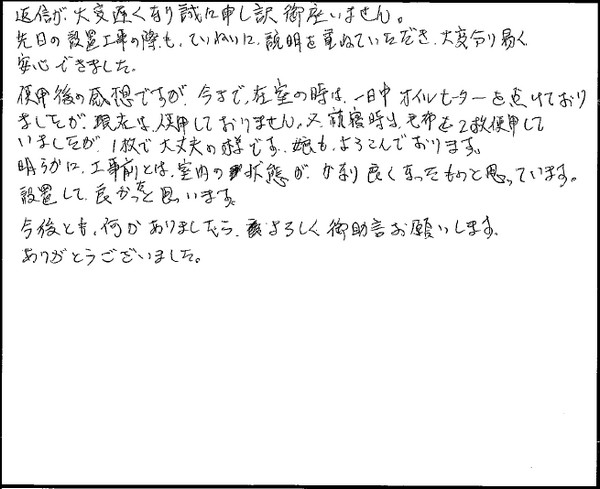 返信が、大変遅くなり誠に申し訳御座いません。
先日の設置工事の際も、ていねいに、説明を重ねていただき、大変分り易く
安心できました。
使用後の感想ですが、今まで、在室の時は、一日中オイルヒーターを点けており
ましたが、現在は、使用しておりません。又、就寝時も、毛布を2枚使用して
いましたが、1枚で大丈夫の様です。娘も、よろこんでおります。
明らかに、工事前とは、室内の状態が、かなり良くなったものと思っています。
設置して、良かったと思います。
今後とも、何かありましたら、よろしく御助言お願いします。
ありがとうございました。